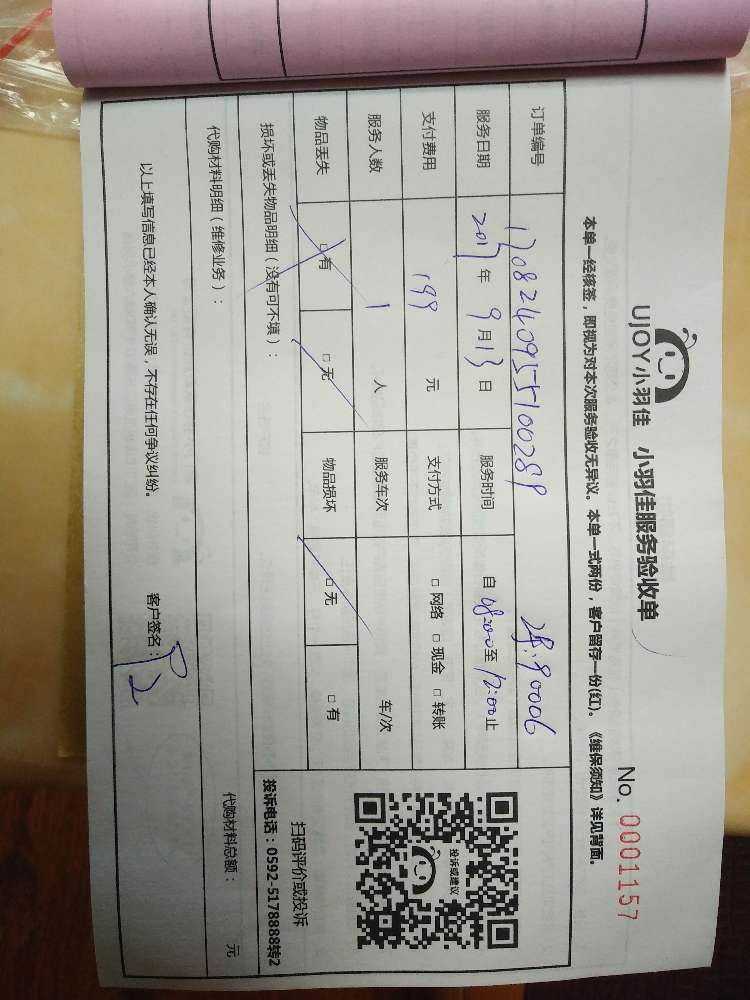 UJOY小羽佳 小羽佳服务验收单
No. 0001157
本单一经核签，即视为对本次服务验收无异议。本单一式两份，客户留存一份(红)。《维保须知》详见背面。
订单编号 1708240955100289
服务日期 2017年9月13日 服务时间 自08:00至12:00止
支付费用 199 元 支付方式 □网络 □现金 □转账
服务人数 1 人 服务车次 车/次
物品丢失 □有 □无 物品损坏 □无 □有
损坏或丢失物品明细（没有可不填）：
代购材料明细（维修业务）：
代购材料总额： 元
以上填写信息已经本人确认无误，不存在任何争议纠纷。
客户签名：
投诉或建议
扫码评价或投诉
投诉电话：0592-5178888转2